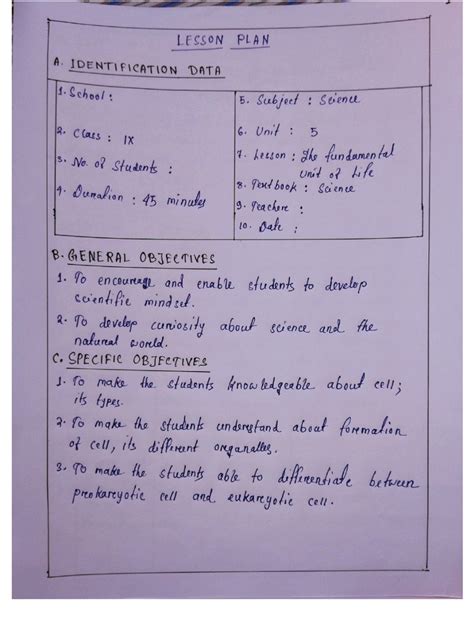 LESSON PLAN
A. IDENTIFICATION DATA
1. School :
2. Class : IX
3. No. of Students :
4. Duration : 45 minutes
5. Subject : Science
6. Unit : 5
7. Lesson : The fundamental
Unit of Life
8. Textbook : Science
9. Teacher :
10. Date :
B. GENERAL OBJECTIVES
1. To encourage and enable students to develop
scientific mindset.
2. To develop curiosity about science and the
natural world.
C. SPECIFIC OBJECTIVES
1. To make the students knowledgeable about cell;
its types.
2. To make the students understand about formation
of cell, its different organalles.
3. To make the students able to differentiate between
prokareyotic cell and eukareyotic cell.